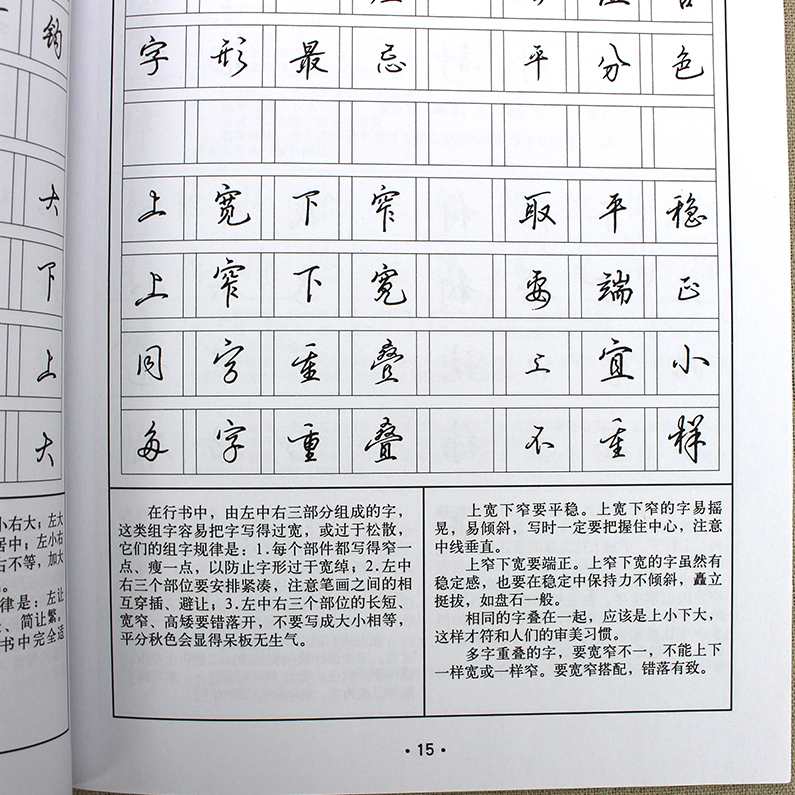 钧
大
下
上
大
小右大；左大
居中；左小右
不等，加大
律是：左让
、简让繁。
书中完全适
字形最忌 平分色
上宽下窄 取平稳
上窄下宽 要端正
同字重叠 上宜小
多字重叠 不重样
在行书中，由左中右三部分组成的字，
这类组字容易把字写得过宽，或过于松散，
它们的组字规律是：1.每个部件都写得窄一
点、瘦一点，以防止字形过于宽绰；2.左中
右三个部位要安排紧凑，注意笔画之间的相
互穿插、避让；3.左中右三个部位的长短、
宽窄、高矮要错落开，不要写成大小相等，
平分秋色会显得呆板无生气。
上宽下窄要平稳。上宽下窄的字易摇
晃，易倾斜，写时一定要把握住中心，注意
中线垂直。
上窄下宽要端正。上窄下宽的字虽然有
稳定感，也要在稳定中保持力不倾斜，矗立
挺拔，如盘石一般。
相同的字叠在一起，应该是上小下大，
这样才符和人们的审美习惯。
多字重叠的字，要宽窄不一，不能上下
一样宽或一样窄。要宽窄搭配，错落有致。
·15·